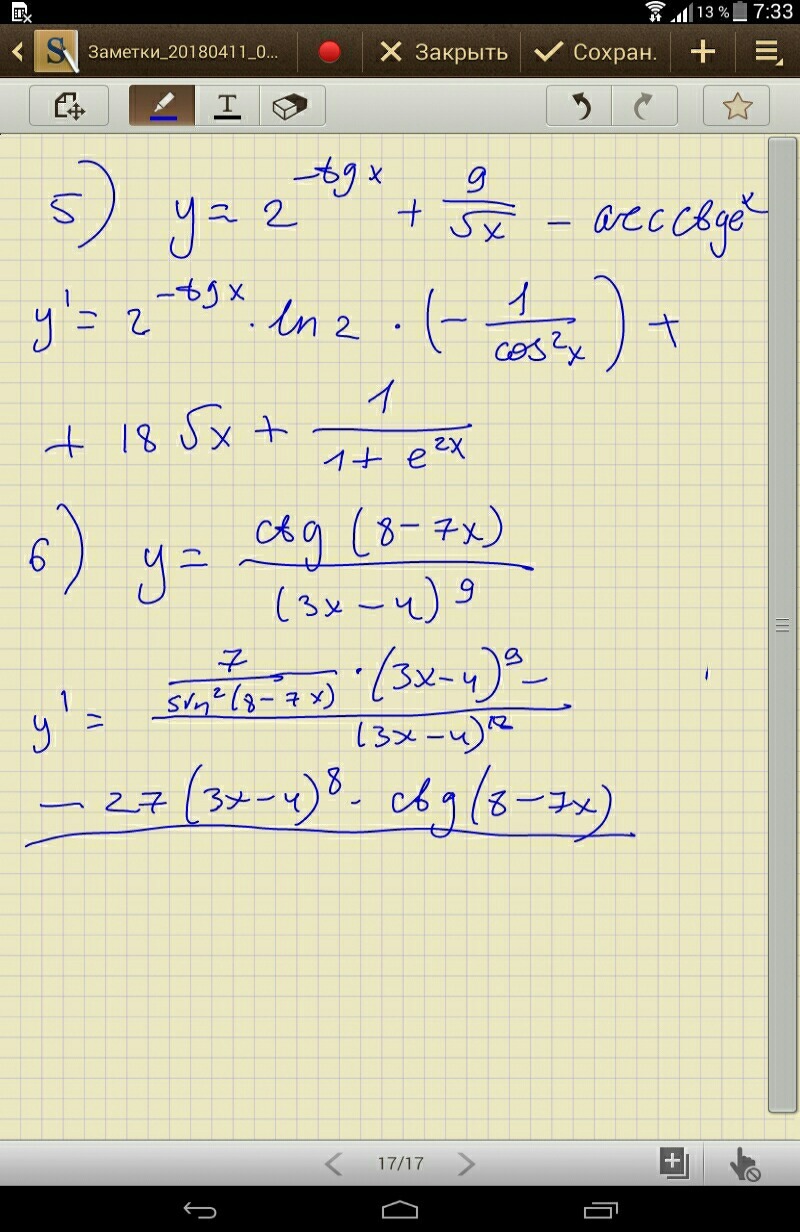 13 % 7:33
Заметки_20180411_0... Закрыть Сохран.
T
5) y = 2^(-tg x) + 9/√x - arcctg e^x
y' = 2^(-tg x) · ln 2 · (- 1/cos²x) +
+ 18 √x + 1/(1 + e^(2x))
6) y = ctg (8 - 7x)/(3x - 4)^9
y' = (7/sin²(8 - 7x) · (3x - 4)^9 -)/(3x - 4)^12
- 27 (3x - 4)^8 · ctg (8 - 7x)
17/17